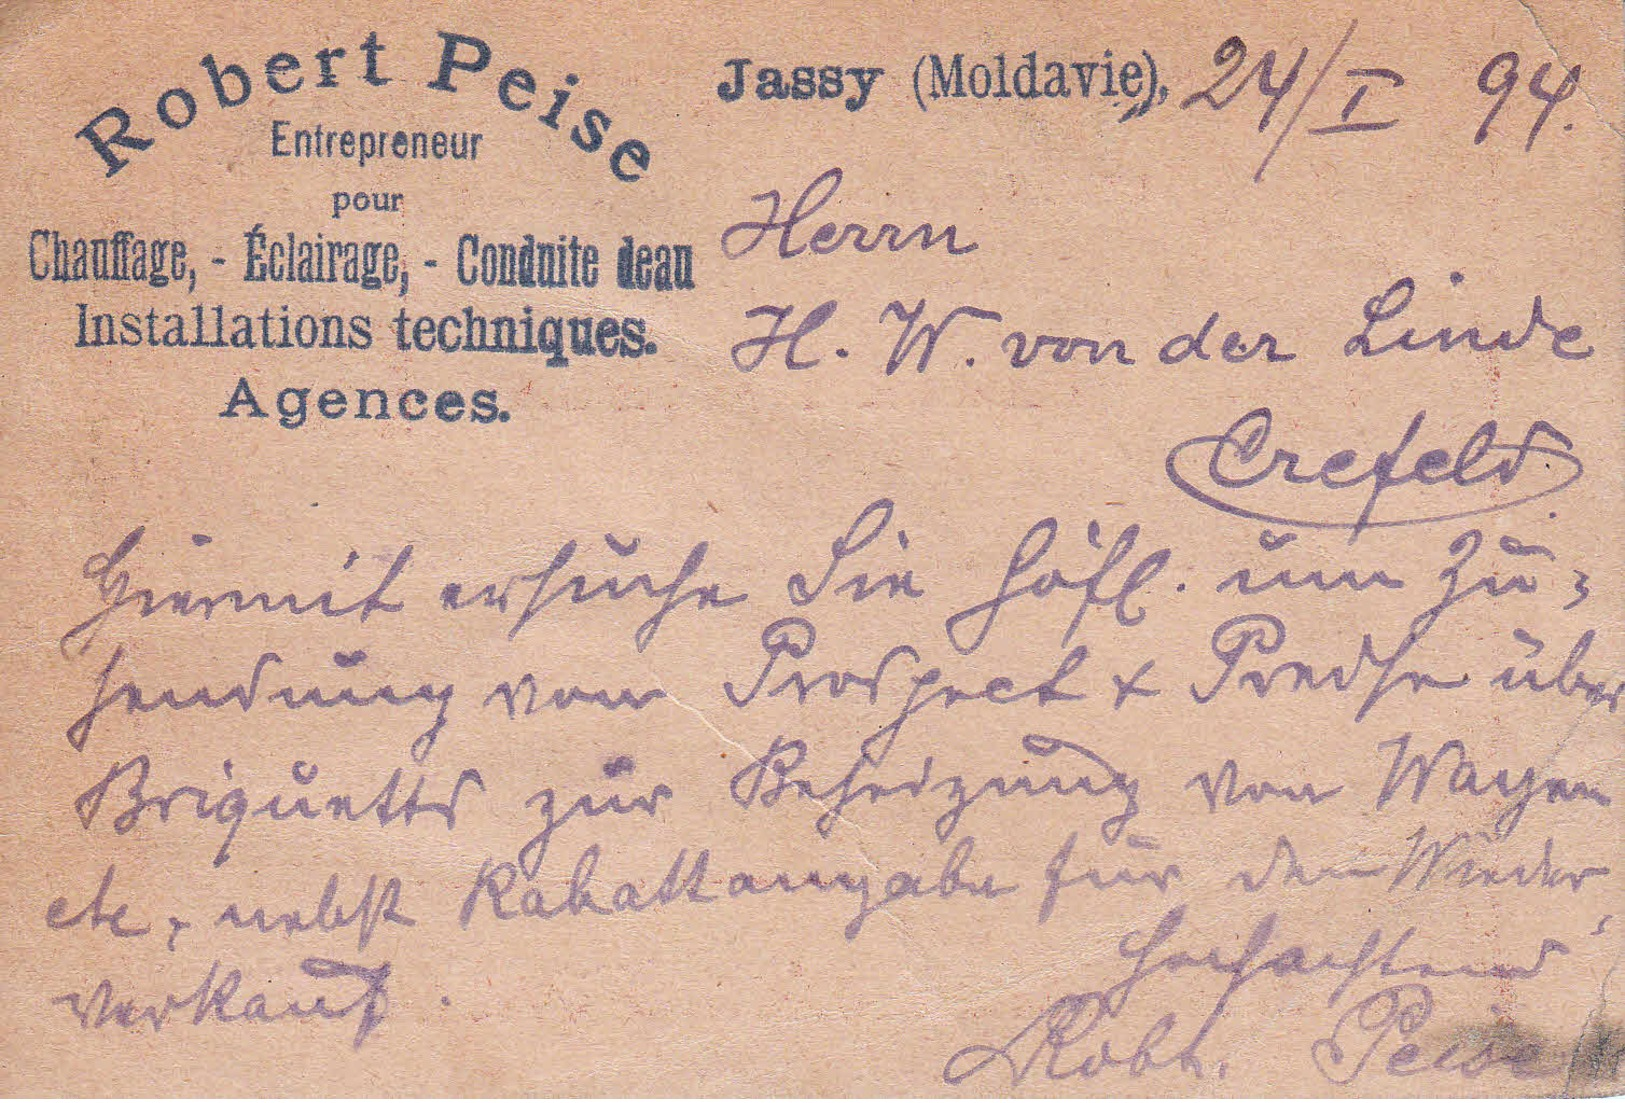 Robert Peise
Entrepreneur
pour
Chauffage, - Éclairage, - Conduite deau
Installations techniques.
Agences.
Jassy (Moldavie), 24/I 94.
Herrn
H. W. von der Linde
Crefeld.
Hiermit ersuche Sie höfl. um Zu=
sendung von Prospect & Preise über
Briquetts zur Beheizung von Wagen
etc, nebst Rabattangabe für den Wieder,
verkauf.
Hochachtend
Robt. Peise